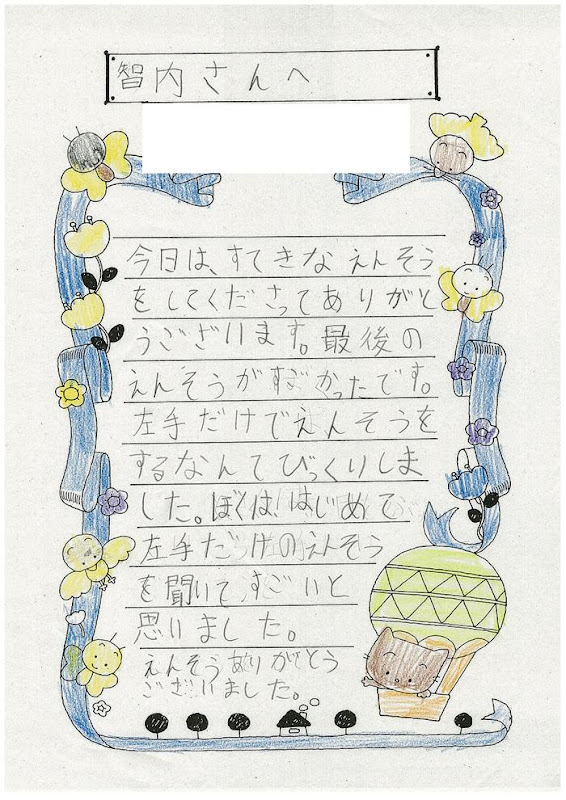 智内さんへ
今日は、すてきなえんそう
をしてくださってありがと
うございます。最後の
えんそうがすごかったです。
左手だけでえんそうを
するなんてびっくりしま
した。ぼくは、はじめて
左手だけのえんそう
を聞いて、すごいと
思いました。
えんそうありがとう
ございました。